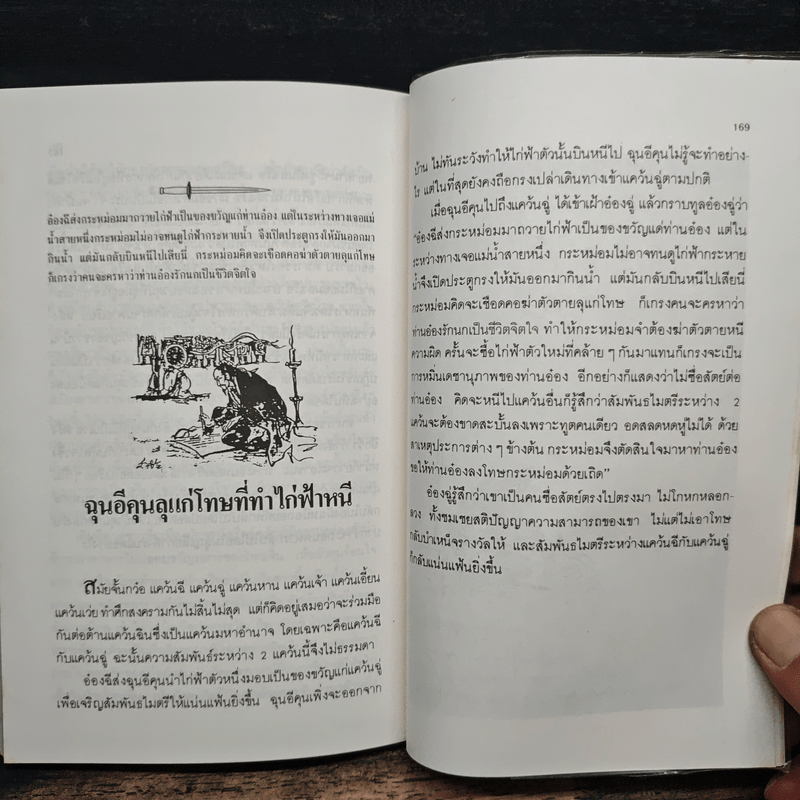 อ๋องฉีส่งกระหม่อมมาถวายไก่ฟ้าเป็นของขวัญแก่ท่านอ๋อง แต่ในระหว่างทางเจอแม่
น้ำสายหนึ่งกระหม่อมไม่อาจทนดูไก่ฟ้ากระหายน้ำ จึงเปิดประตูกรงให้มันออกมา
กินน้ำ แต่มันกลับบินหนีไปเสียนี่ กระหม่อมคิดจะเชือดคอฆ่าตัวตายลุแก่โทษ
ก็เกรงว่าคนจะครหาว่าท่านอ๋องรักนกเป็นชีวิตจิตใจ
ฉุนอีคุนลุแก่โทษที่ทำไก่ฟ้าหนี
สมัยจั้นกว๋อ แคว้นฉี แคว้นฉู่ แคว้นหาน แคว้นเจ้า แคว้นเอี้ยน
แคว้นเว่ย ทำศึกสงครามกันไม่สิ้นไม่สุด แต่ก็คิดอยู่เสมอว่าจะร่วมมือ
กันต่อต้านแคว้นฉินซึ่งเป็นแคว้นมหาอำนาจ โดยเฉพาะคือแคว้นฉี
กับแคว้นฉู่ ฉะนั้นความสัมพันธ์ระหว่าง 2 แคว้นนี้จึงไม่ธรรมดา
อ๋องฉีส่งฉุนอีคุนนำไก่ฟ้าตัวหนึ่งมอบเป็นของขวัญแก่แคว้นฉู่
เพื่อเจริญสัมพันธไมตรีให้แน่นแฟ้นยิ่งขึ้น ฉุนอีคุนเพิ่งจะออกจาก
169
บ้าน ไม่ทันระวังทำให้ไก่ฟ้าตัวนั้นบินหนีไป ฉุนอีคุนไม่รู้จะทำอย่าง-
ไร แต่ในที่สุดยังคงถือกรงเปล่าเดินทางเข้าแคว้นฉู่ตามปกติ
เมื่อฉุนอีคุนไปถึงแคว้นฉู่ ได้เข้าเฝ้าอ๋องฉู่ แล้วกราบทูลอ๋องฉู่ว่า
“อ๋องฉีส่งกระหม่อมมาถวายไก่ฟ้าเป็นของขวัญแด่ท่านอ๋อง แต่ใน
ระหว่างทางเจอแม่น้ำสายหนึ่ง กระหม่อมไม่อาจทนดูไก่ฟ้ากระหาย
น้ำจึงเปิดประตูกรงให้มันออกมากินน้ำ แต่มันกลับบินหนีไปเสียนี่
กระหม่อมคิดจะเชือดคอฆ่าตัวตายลุแก่โทษ ก็เกรงคนจะครหาว่า
ท่านอ๋องรักนกเป็นชีวิตจิตใจ ทำให้กระหม่อมจำต้องฆ่าตัวตายหนี
ความผิด ครั้นจะซื้อไก่ฟ้าตัวใหม่ที่คล้าย ๆ กันมาแทนก็เกรงจะเป็น
การหมิ่นเดชานุภาพของท่านอ๋อง อีกอย่างก็แสดงว่าไม่ซื่อสัตย์ต่อ
ท่านอ๋อง คิดจะหนีไปแคว้นอื่นก็รู้สึกว่าสัมพันธไมตรีระหว่าง 2
แคว้นจะต้องขาดสะบั้นลงเพราะทูตคนเดียว อดสลดหดหู่ไม่ได้ ด้วย
สาเหตุประการต่าง ๆ ข้างต้น กระหม่อมจึงตัดสินใจมาหาท่านอ๋อง
ขอให้ท่านอ๋องลงโทษกระหม่อมด้วยเถิด”
อ๋องฉู่รู้สึกว่าเขาเป็นคนซื่อสัตย์ตรงไปตรงมา ไม่โกหกหลอก-
ลวง ทั้งชมเชยสติปัญญาความสามารถของเขา ไม่แต่ไม่เอาโทษ
กลับบำเหน็จรางวัลให้ และสัมพันธไมตรีระหว่างแคว้นฉีกับแคว้นฉู่
ก็กลับแน่นแฟ้นยิ่งขึ้น